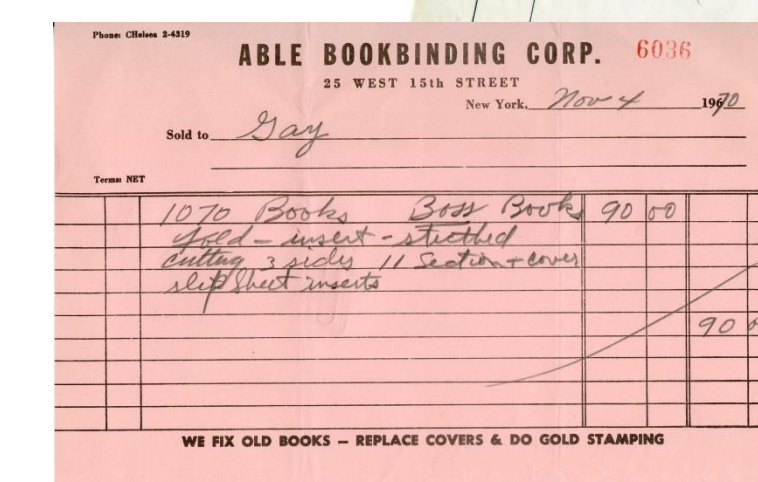 Phone: CHelsea 2-4319
ABLE BOOKBINDING CORP. 6036
25 WEST 15th STREET
New York, Nov 4 1970
Sold to Gay
Terms: NET
1070 Books Boss Books 90 00
fold - insert - stitched
cutting 3 sides 11 Section + cover
slip sheet inserts
90
WE FIX OLD BOOKS — REPLACE COVERS & DO GOLD STAMPING